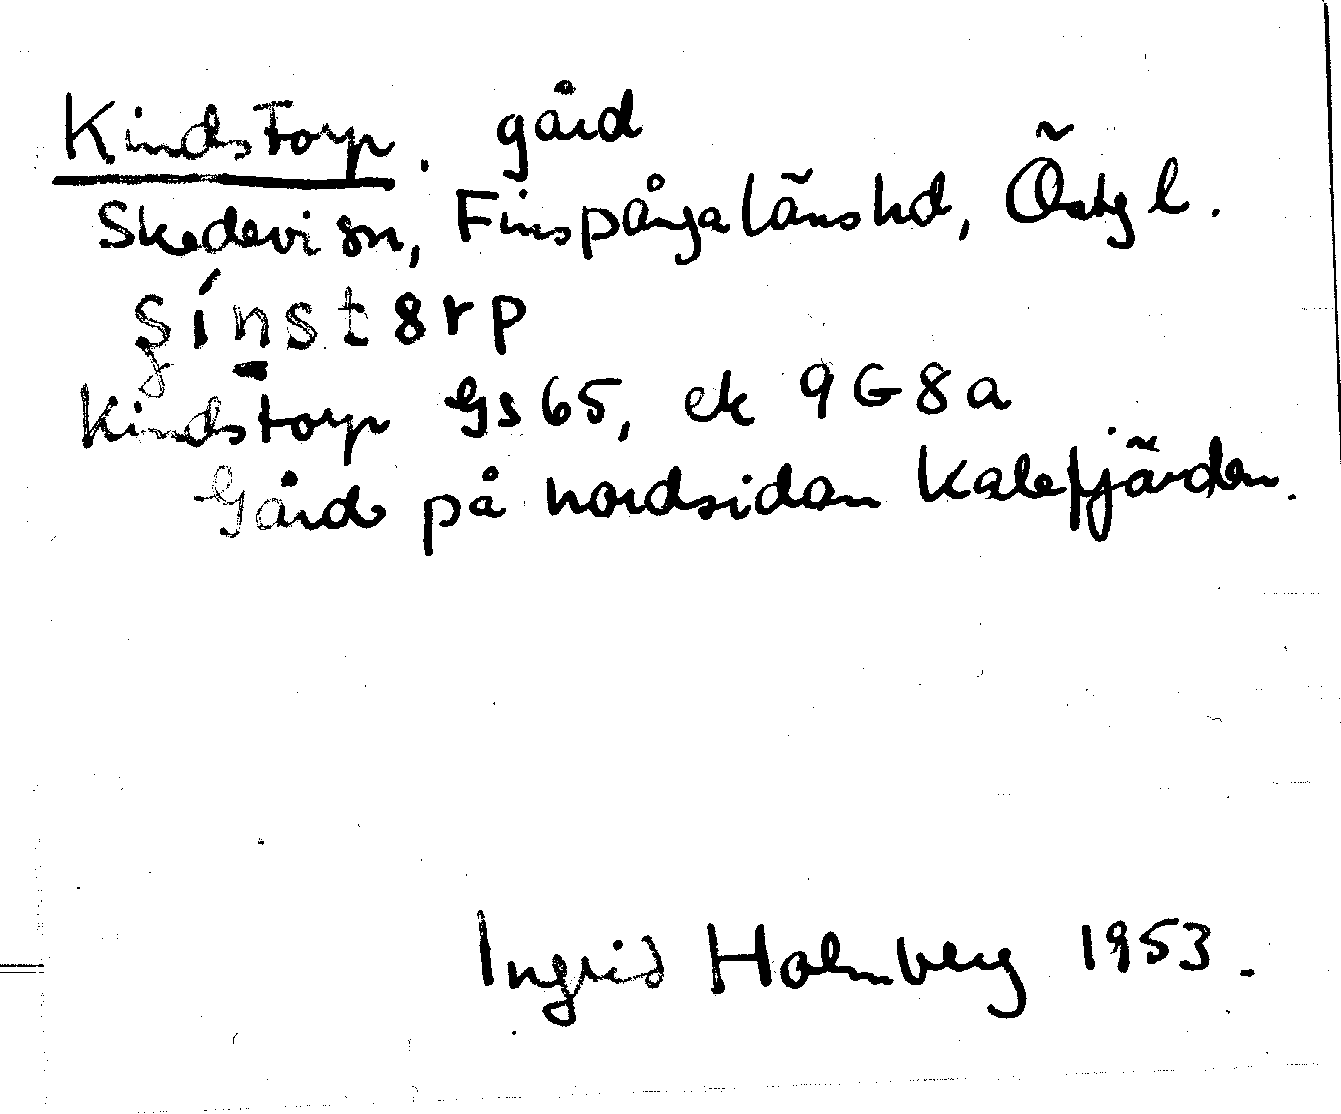 Kindstorp. gård
Skedevi sn, Finspånga länshd, Östgl.
şínst8rp
Kindstorp Gs 65, ek 9G8a
Gård på nordsidan Kalefjärden.
Ingrid Holmberg 1953.